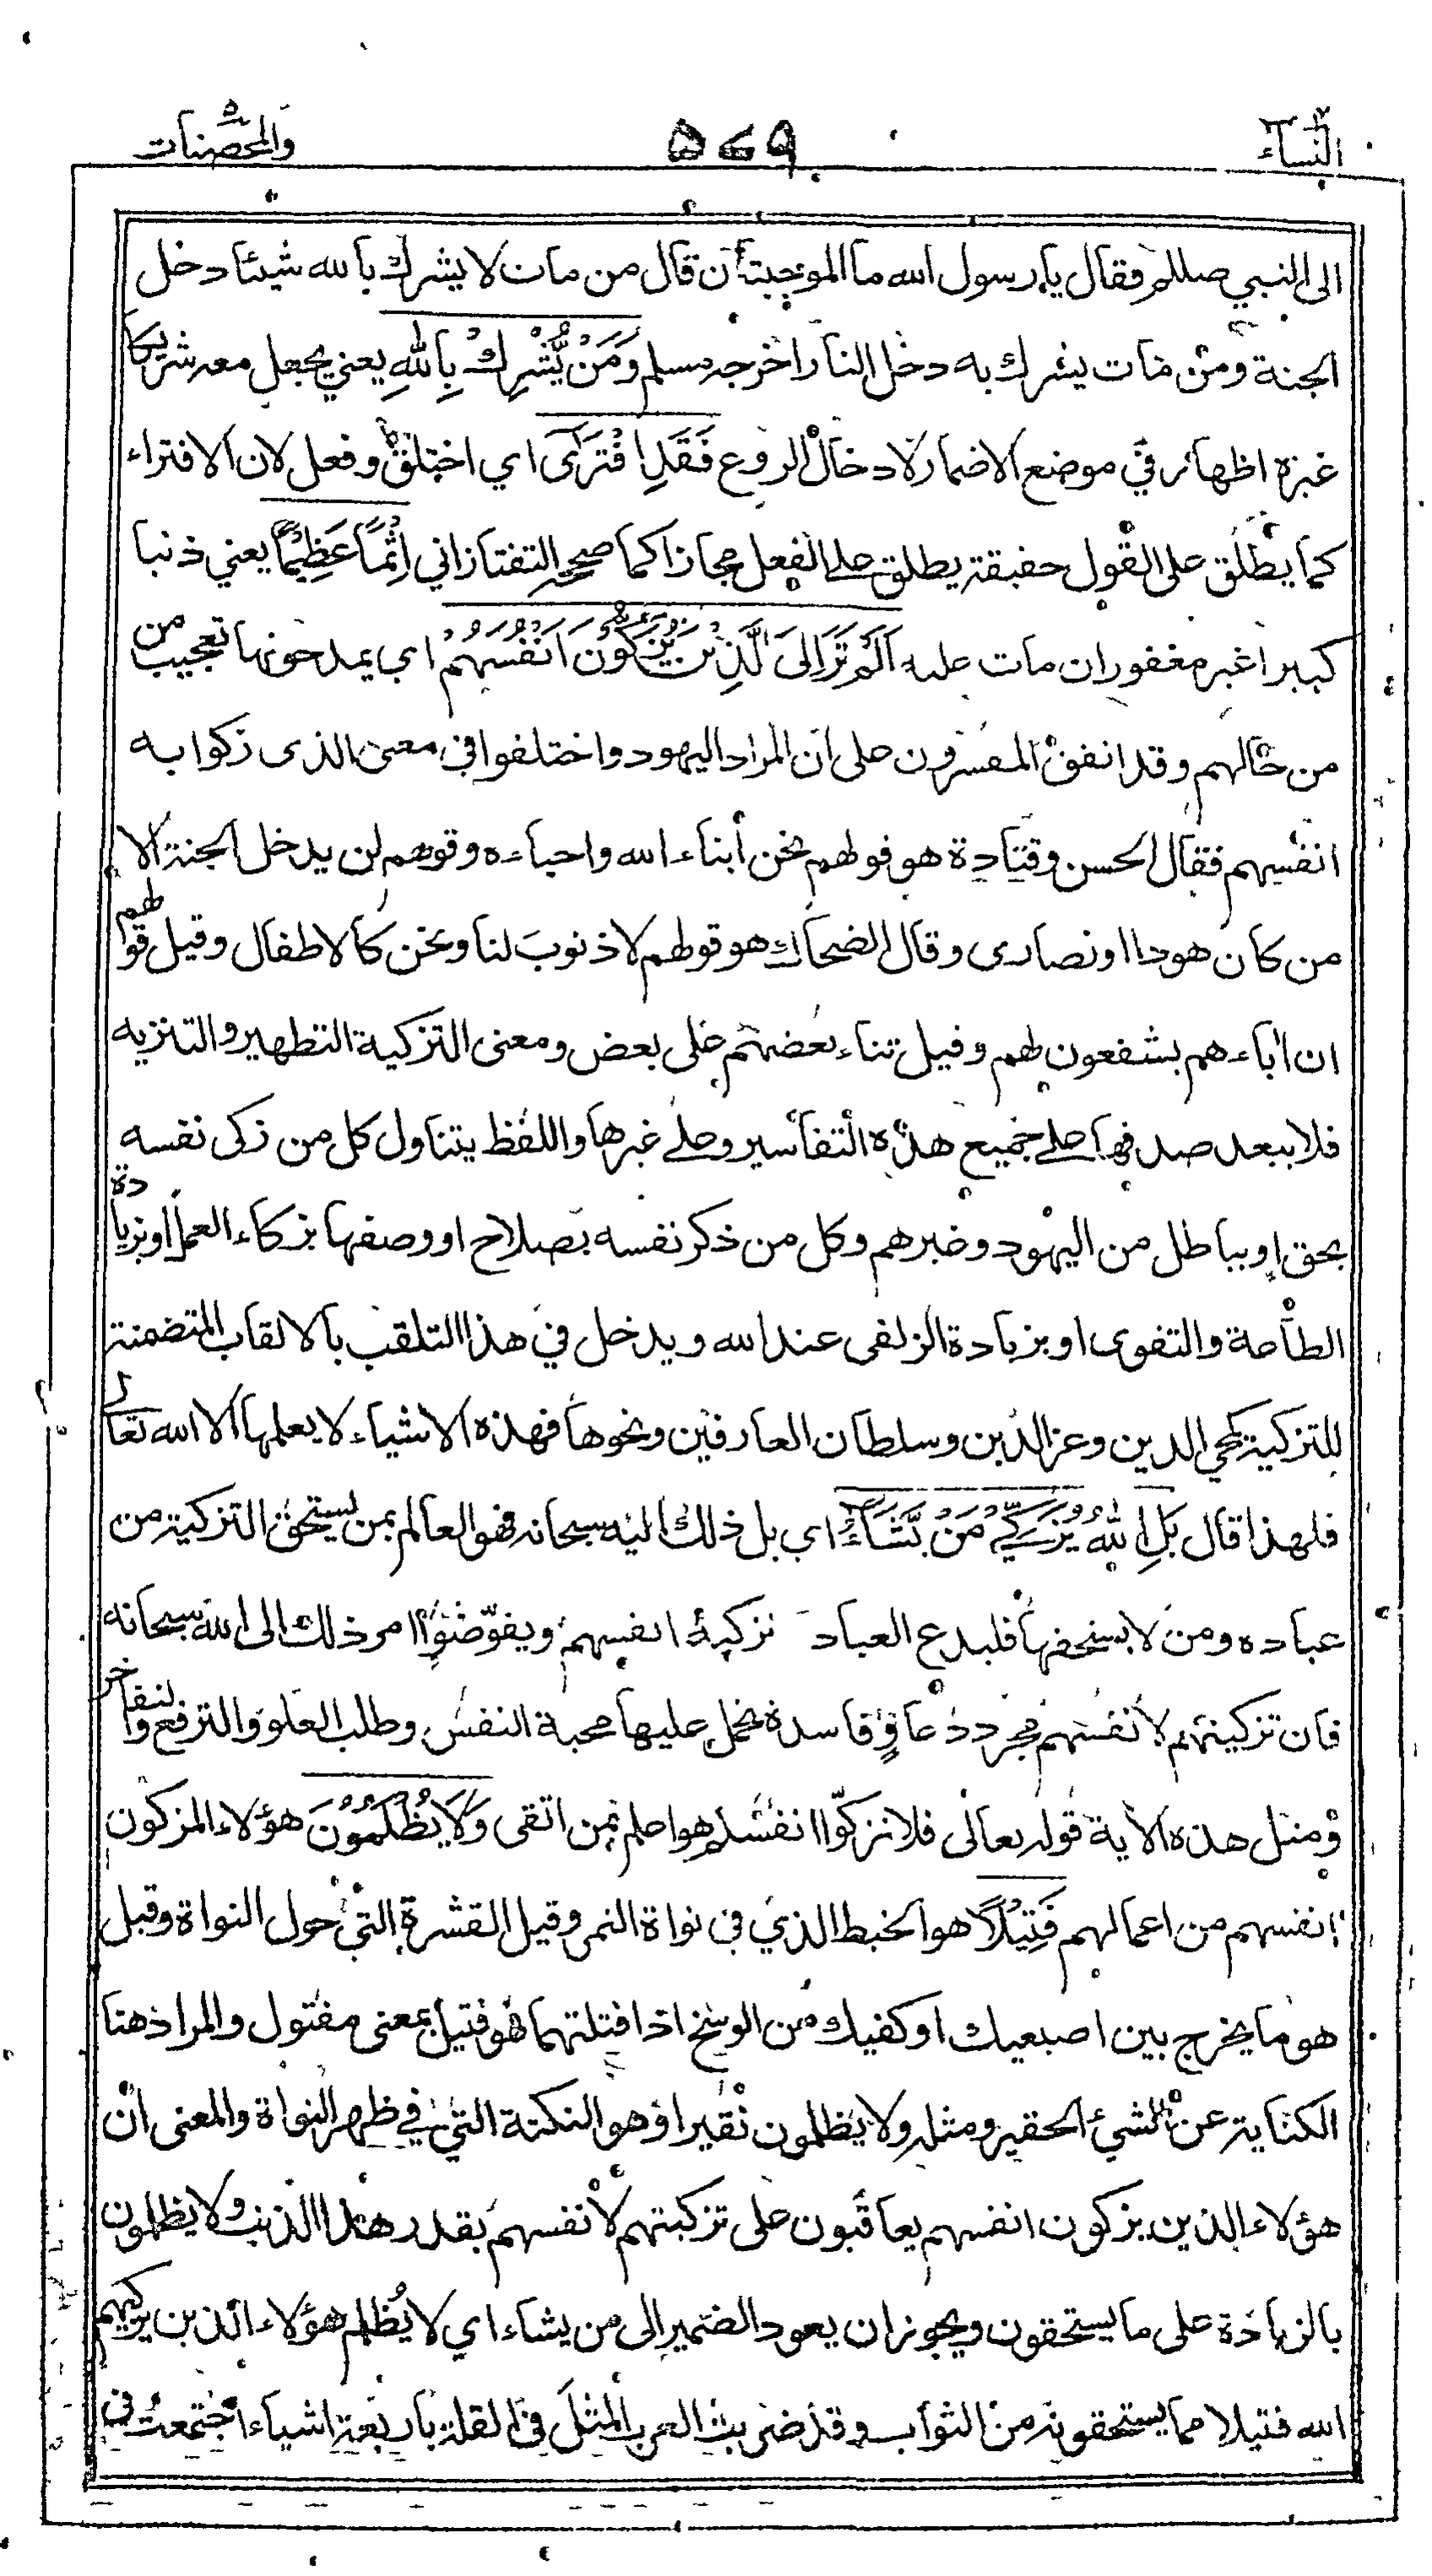 النساء ٤
٥٦٩
والمحصنات ٥
الى النبي صللم فقال يا رسول الله ما الموجبتان قال من مات لا يشرك بالله شيئا دخل
الجنة ومن مات يشرك به دخل النار اخرجه مسلم وَمَنْ يُّشْرِكْ بِاللهِ يعني يجعل معه شريكا
غيره اظهار في موضع الاضمار لادخال الروع فَقَدِ افْتَرَىٰ اي اختلق وفعل لان الافتراء
كما يطلق على القول حقيقة يطلق على الفعل مجازا كما صححه التفتازاني اِثْمًا عَظِيْمًا يعني ذنبا
كبيرا غير مغفور ان مات عليه اَلَمْ تَرَ اِلَى الَّذِيْنَ يُزَكُّوْنَ اَنْفُسَهُمْ اي يمدحونها تعجيب من
من حالهم وقد اتفق المفسرون على ان المراد اليهود واختلفوا في معنى الذى زكوا به
انفسهم فقال الحسن وقتادة هو قولهم نحن أبناء الله واحباءه وقولهم لن يدخل الجنة الا
من كان هودا او نصارى وقال الضحاك هو قولهم لا ذنوب لنا ونحن كالاطفال وقيل قولهم
ان اٰباءهم يشفعون لهم وقيل ثناء بعضهم على بعض ومعنى التزكية التطهير والتنزيه
فلا يبعد صدقها على جميع هذه التفاسير وعلى غيرها واللفظ يتناول كل من زكى نفسه
بحق او بباطل من اليهود وغيرهم وكل من ذكر نفسه بصلاح او وصفها بزكاء العمل او بزيادة
الطاعة والتقوى او بزيادة الزلفى عند الله ويدخل في هذا التلقب بالالقاب المتضمنة
للتزكية كمحي الدين وعز الدين وسلطان العارفين ونحوها فهذه الاشياء لا يعلمها الا الله تعالى
فلهذا قال بَلِ اللهُ يُزَكِّيْ مَنْ يَّشَاءُ اي بل ذلك اليه سبحانه فهو العالم بمن يستحق التزكية من
عباده ومن لا يستحقها فليدع العباد تزكية انفسهم ويفوّضوا امر ذلك الى الله سبحانه
فان تزكيتهم لأنفسهم مجرد دعاوٍ فاسدة تحمل عليها محبة النفس وطلب العلو والترفع والتفاخر
ومثل هذه الأية قوله تعالى فلا تزكّوا انفسكم هو اعلم بمن اتقى وَلَا يُظْلَمُوْنَ هؤلاء المزكون
انفسهم من اعمالهم فَتِيْلًا هو الخيط الذي في نواة التمر وقيل القشرة التي حول النواة وقيل
هو ما يخرج بين اصبعيك او كفيك من الوسخ اذا فتلتهما فهو فتيل بمعنى مفتول والمراد هنا
الكناية عن الشيئ الحقير ومثله ولا يظلمون نقيرا وهو النكتة التي في ظهر النواة والمعنى ان
هؤلاء الذين يزكون انفسهم يعاقبون على تزكيتهم لأنفسهم بقدر هذا الذنب ولا يظلمون
بالزيادة على ما يستحقون ويجوز ان يعود الضمير الى من يشاء اي لا يُظلم هؤلاء الذين يزكيهم
الله فتيلا مما يستحقونه من الثواب وقد ضربت العرب المثل في القلة باربعة اشياء اجتمعت في